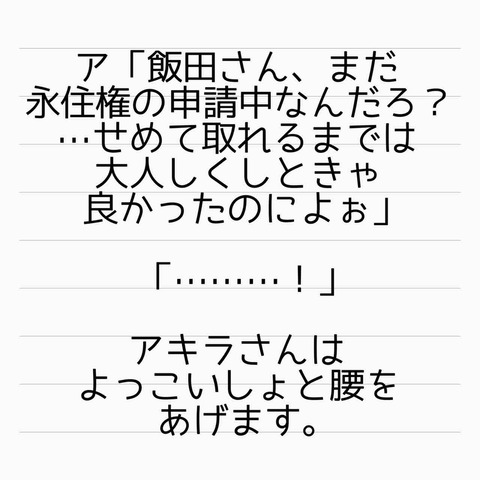 ア「飯田さん、まだ
永住権の申請中なんだろ？
…せめて取れるまでは
大人しくしときゃ
良かったのによぉ」
「………！」
アキラさんは
よっこいしょと腰を
あげます。